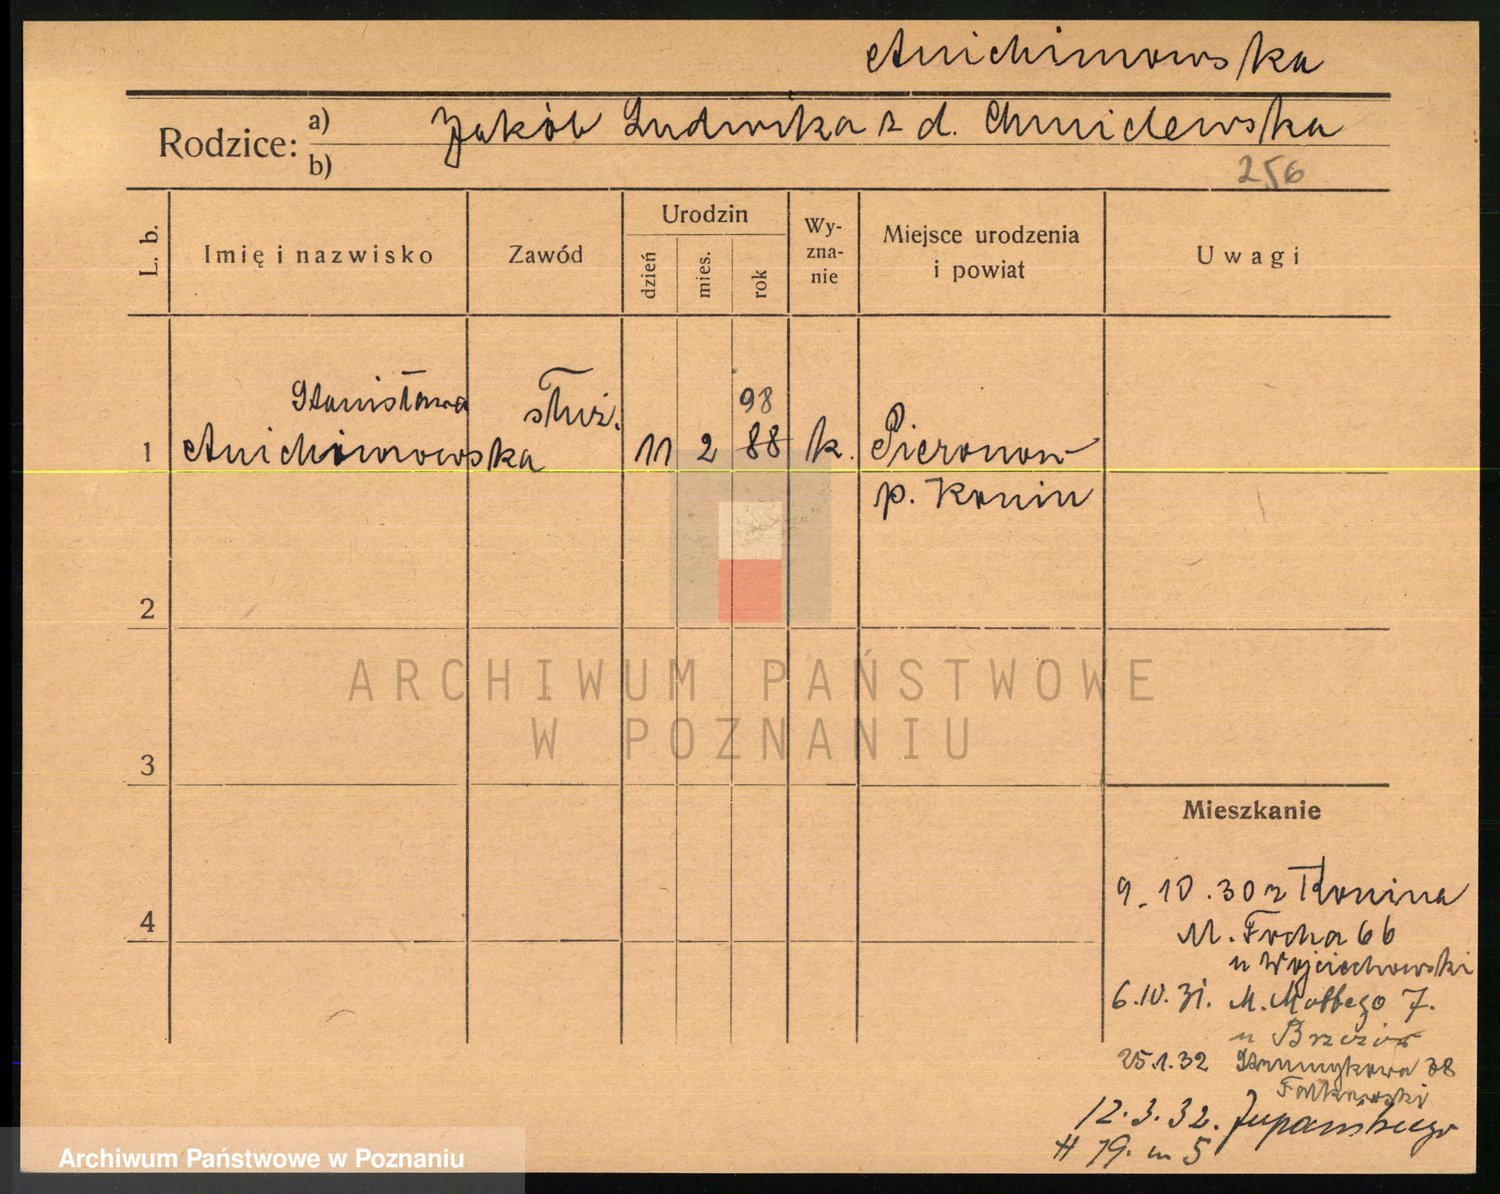 Anichimowska
Rodzice: a) b) Jakób Ludwika z d. Chmielewska
256
L. b. Imię i nazwisko Zawód Urodzin dzień mies. rok Wy-zna-nie Miejsce urodzenia i powiat Uwagi
Stanisława służ. 98
1 Anichimowska 11 2 88 k. Pieronow
p. Konin
2
ARCHIWUM PAŃSTWOWE
W POZNANIU
3
Mieszkanie
4
9.10.30 z Konina
M. Focha 66
u Wojciechowski
6.10.31. M. 7.
u
25.1.32 38
Falkowski
12.3.32. Żupańskiego
19. m 5
Archiwum Państwowe w Poznaniu